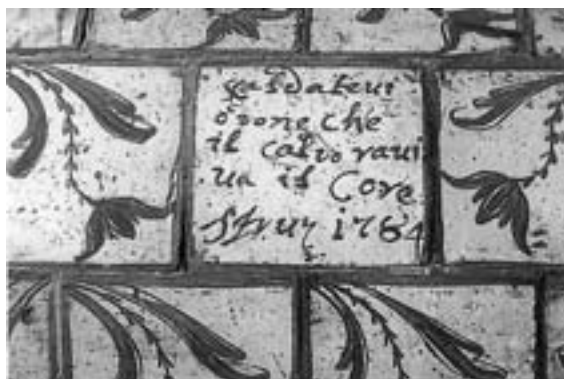 scaldateui
o done che
il caldo raui
ua il Core
Struz 1784